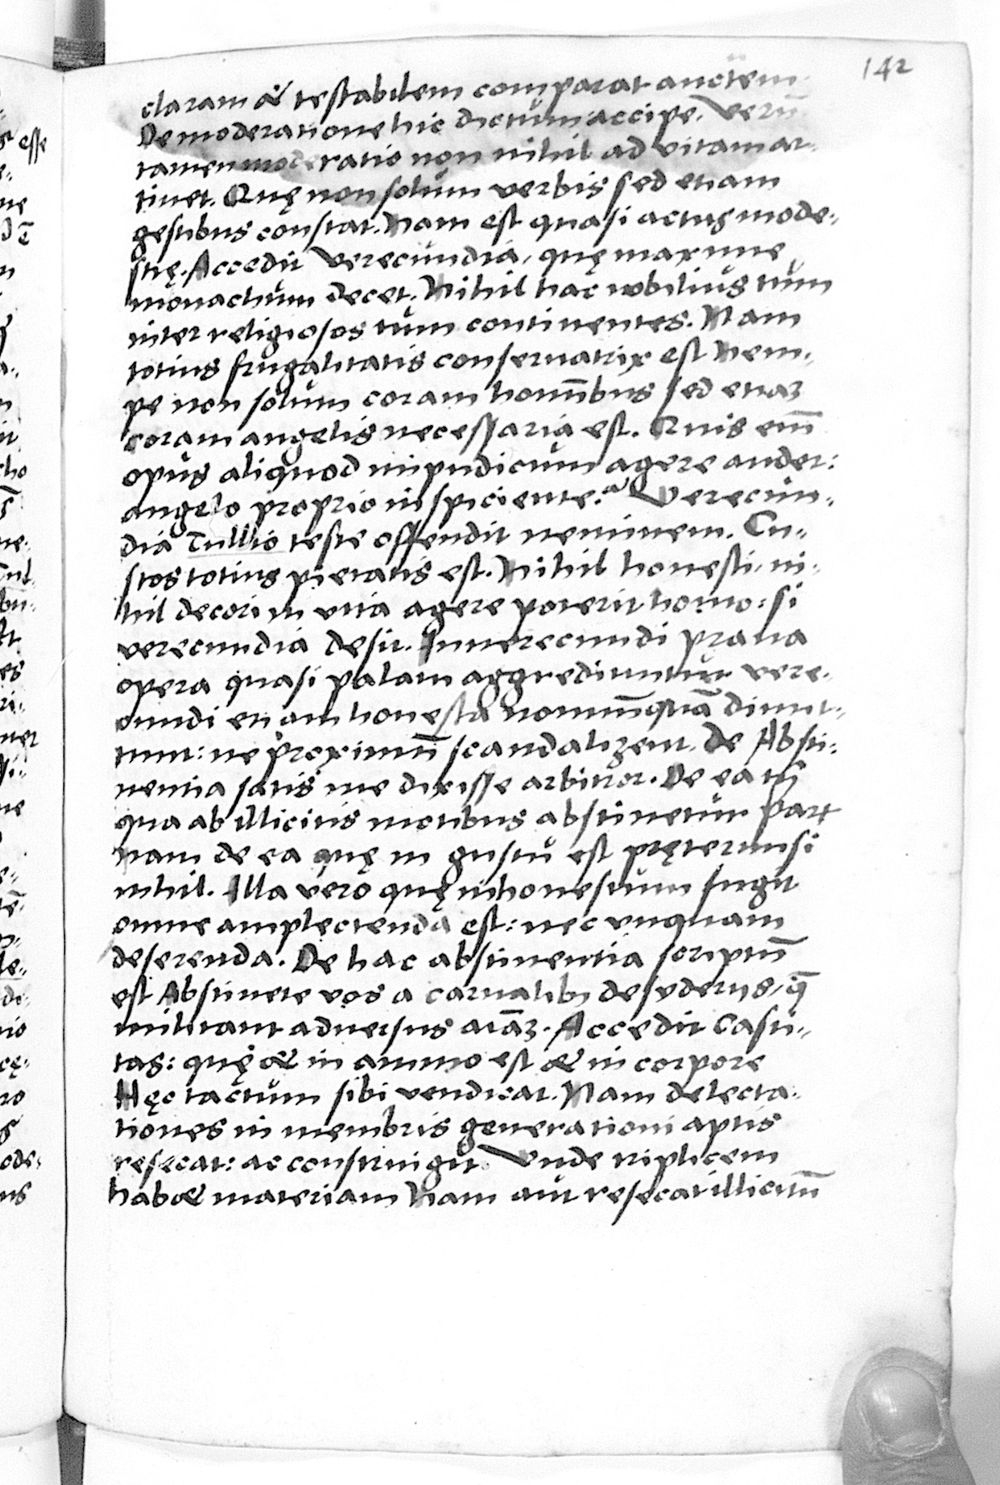 142
claram & testabilem comparat auctẽm
De moderatione hic dictum accipe. Verũ
tamen moderatio non nihil ad vitam at-
tinet. Quę non solum verbis sed etiam
gestibus constat. Nam est quasi actus mode-
stię. Accedit Verecundia, quę maxime
monachum decet. Nihil hac nobilius tum
inter religiosos tum continentes. Nam
totius frugalitatis conseruatrix est Nem-
pe non solum coram hominibus sed etiaꝫ
coram angelis necessaria est. Quis eni͂
opus aliquod impudicum agere audet:
angelo proprio inspiciente? Verecun-
dia Tullio teste offendit neminem. Cu-
stos totius pietatis est. Nihil honesti, ni-
hil decori in vita agere poterit homo: si
verecundia desit. Inuerecundi praua
opera quasi palam aggrediuntur vere-
cundi etiam honesta nonnũquã dimit-
tunt: ne proximũ scandalizent. De Absti-
nentia satis me dixisse arbitror. De ea tñ
qua ab illicitis motibus abstinetur
nam de ea quę in gustu est pręterimsi
nihil. Illa vero quę inhonestum fugit
omne amplectenda est: nec vnquam
deserenda. De hac abstinentia scriptũ
est Abstinete vos a carnalibꝰ desyderijs, q̃
militant aduersus aiãꝫ. Accedit Casti-
tas: quę & in animo est & in corpore
Hęc tactum sibi vendicat. Nam delecta-
tiones in membris generationi aptis
resecat: ac constringit. Vnde triplicem
hab& materiam Nam aut resecat illicitũ